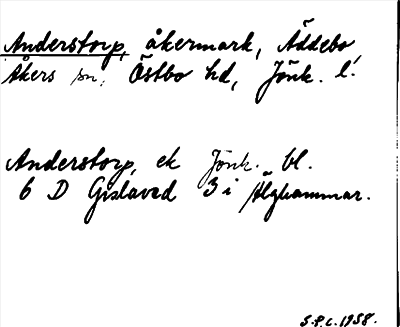 Anderstorp, åkermark, Äddebo,
Åkers sn, Östbo hd, Jönk. l.
Anderstorp, ek Jönk. bl.
6 D Gislaved 3 i Älghammar.
S.P.C. 1958.